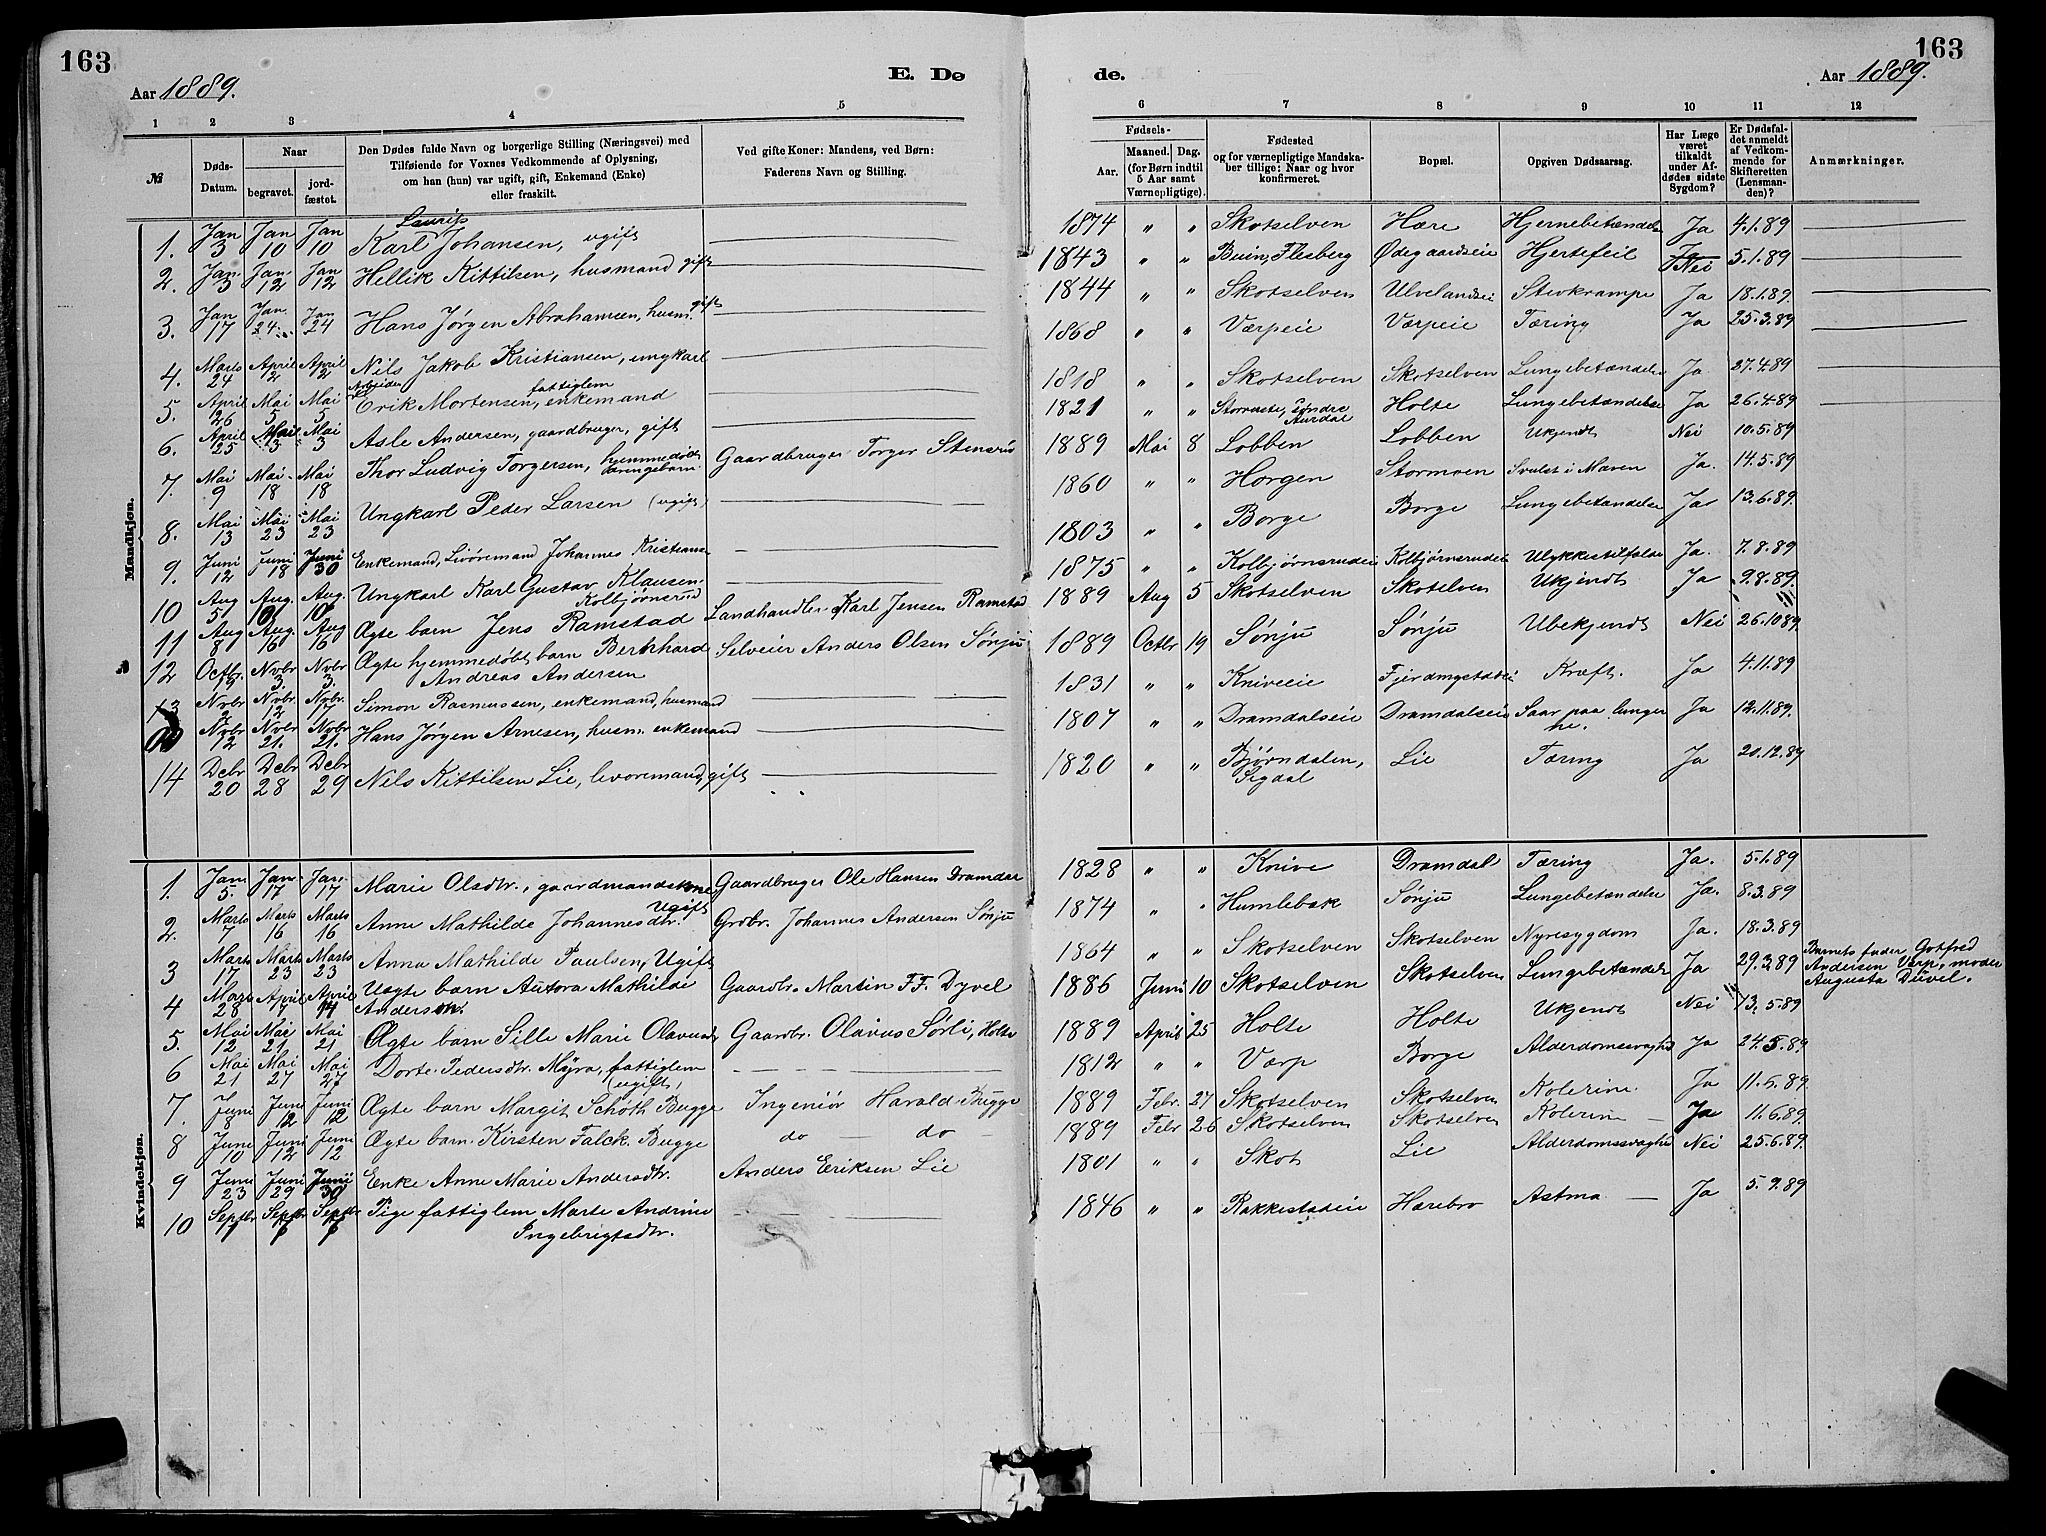 163
Aar 1889.
E. Dø
1 2 3 4 5
№
Døds-Datum.
Naar
begravet.
jord-fæstet.
Den Dødes fulde Navn og borgerlige Stilling (Næringsvei) med
Tilføiende for Voxnes Vedkommende af Oplysning,
om han (hun) var ugift, gift, Enkemand (Enke)
eller fraskilt.
Ved gifte Koner: Mandens, ved Børn:
Faderens Navn og Stilling.
Mandkjøn.
1. Jan 3 Jan 10 Jan 10 Karl Laurits Johansen, ugift
2. Jan 3 Jan 12 Jan 12 Hellik Kittilsen, husmand gift
3. Jan 17 Jan 24 Jan 24 Hans Jørgen Abrahamsen, husm. gift
4. Marts 24 April 2 April 2 Nils Jakob Kristiansen, ungkarl
5. April 26 Mai 5 Mai 5 Arbeider Erik Mortensen, fattiglem enkemand
6. April 25 Mai 3 Mai 3 Asle Andersen, gaardbruger, gift
7. Mai 9 Mai 18 Mai 18 Thor Ludvig Torgersen, hjemmedøbt Gaardbruger Torger Stensrud
8. Mai 13 Mai 23 Mai 23 Ungkarl Peder Larsen (ugift)
9. Juni 12 Juni 18 Juni 30 Enkemand, Livøremand Johannes Kristians
10 Aug 5. Aug. 10 Aug. 10 Ungkarl Karl Gustav Klausen Kolbjørnsrud
11 Aug 8 Aug. 16 Aug 16 Ægte barn Jens Ramstad Landhandler Karl Jensen Ramstad
12 Octbr. Nvbr 3. Nvbr 3. Ægte hjemmedøbt barn Bernhard Selveier Anders Olsen Sønju
Andreas Andersen
13 Nvbr 2 Nvbr. 12 Nvbr. 17 Simon Rasmussen, enkemand, husmand
Nvbr 12 Nvbr 21. Nvbr 21. Hans Jørgen Arnesen, husm. enkemand
14 Dcbr 20 Dcbr 28 Dcbr 29 Nils Kittilsen Lie, livøremand, gift
Kvindekjøn.
1. Jan 5. Jan 17 Jan. 17 Marie Olsdtr., gaardmandskone Gaardbruger Ole Hansen Dramdal
2. Marts 7 Marts 16 Marts 16 Anne Mathilde Johannesdtr. Ugift Grdbr. Johannes Andersen Sønju
3 Marts 17 Marts 23 Marts 23 Anna Mathilde Paulsen, Ugift
4 Marts 28 April 7 April 14 Uægte barn Aurora Mathilde Gaardbr. Martin FF. Dyvel
Andersen.
5. Mai 12 Mai 21 Mai 21 Ægte barn Sille Marie Olavusd Gaardbr. Olavus Sørli, Holte
6 Mai 21 Mai 27 Mai 27 Dorte Pedersdtr. Myra, fattiglem (ugift)
7. Juni 8 Juni 12 Juni 12 Ægte barn Margit Schøth Bugge Ingeniør Harald Bugge
8 Juni 10 Juni 12 Juni 12 Ægte barn Kirsten Falck Bugge do do
9 Juni 23 Juni 29 Juni 30 Enke Anne Marie Andersdtr. Anders Eriksen Lie
10 Septbr 1 Septbr Septbr Pige fattiglem Marte Andrine
Ingebrigtsdtr.
163
de.
Aar 1889.
6 7 8 9 10 11 12
Fødsels-
Aar.
Maaned. Dag.
(for Børn indtil
5 Aar samt
Værnepligtige).
Fødested
og for værnepligtige Mandska-
ber tillige: Naar og hvor
konfirmeret.
Bopæl.
Opgiven Dødsaarsag.
Har Læge
været
tilkaldt
under Af-
dødes sidste
Sygdom?
Er Dødsfal-
det anmeldt
af Vedkom-
mende for
Skifteretten
(Lensman-
den)?
Anmærkninger.
1874 " " Skotselven Hære Hjernebetændelse Ja 4.1.89
1843 " " Buin, Flesberg Ødegaardseie Hjertefeil Nei 5.1.89
1844 " " Skotselven Ulvelandseie Stivkrampe Ja 18.1.89.
1868 " " Værpeie Værpeie Tæring Ja 25.3.89
1818 " " Skotselven Skotselven Lungebetændelse Ja 27.4.89
1821 " " søndre Aurdal Holte Lungebetændelse Ja 26.4.89
1889 Mai 8 Lobben Lobben Ukjendt Nei 10.5.89
1860 " " Horgen Stormoen Svulst i Maven Ja. 14.5.89
1803 " " Borge Borge Lungebetændelse Ja 13.6.89.
1875 " " Kolbjørnsrudeie Kolbjørnsrudeie Ulykkestilfælde Ja. 7.8.89
1889 Aug 5 Skotselven Skotselven Ukjendt Ja 9.8.89.
1889 Octbr 19 Sønju Sønju Ubekjendt Nei 26.10.89
1831 " " Kniveeie Fjerdingstadeie Kræft. Ja 4.11.89
1807 " " Dramdalseie Dramdalseie Saar paa lungerne. Ja 12.11.89.
1820 " " Bjørndalen, Sigdal Lie Tæring Ja 20.12.89
1828 " " Knive Dramdal Tæring Ja. 5.1.89
1874 " " Humlebæk Sønju Lungebetændelse Ja. 8.3.89
1864 " " Skotselven Skotselven Nyresygdom Ja. 18.3.89
1886 Juni 10 Skotselven Skotselven Lungebetændelse Ja 29.3.89 Barnets fader Gotfred
Andersen Værp, moder
Augusta Düvel.
1889 April 25 Holte Holte Ukjendt Nei 13.5.89
1812 " " Værp Borge Alderdomssvaghed Ja 24.5.89
1889 Febr. 27 Skotselven Skotselven Kolerine Ja 11.6.89
1889 Febr 26 Skotselven Skotselven Kolerine Ja 11.6.89.
1801 " " Skot Lie Alderdomssvaghed Nei 25.6.89.
1846 " " Rakkestadeie Hærebro Astma Ja 5.9.89